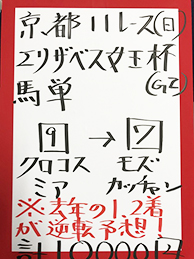 京都11レース(日)
エリザベス女王杯
馬単 (GI)
9 → 7
クロコス モズ
ミア カッチャン
※去年の1,2着
が逆転予想!
計10000円